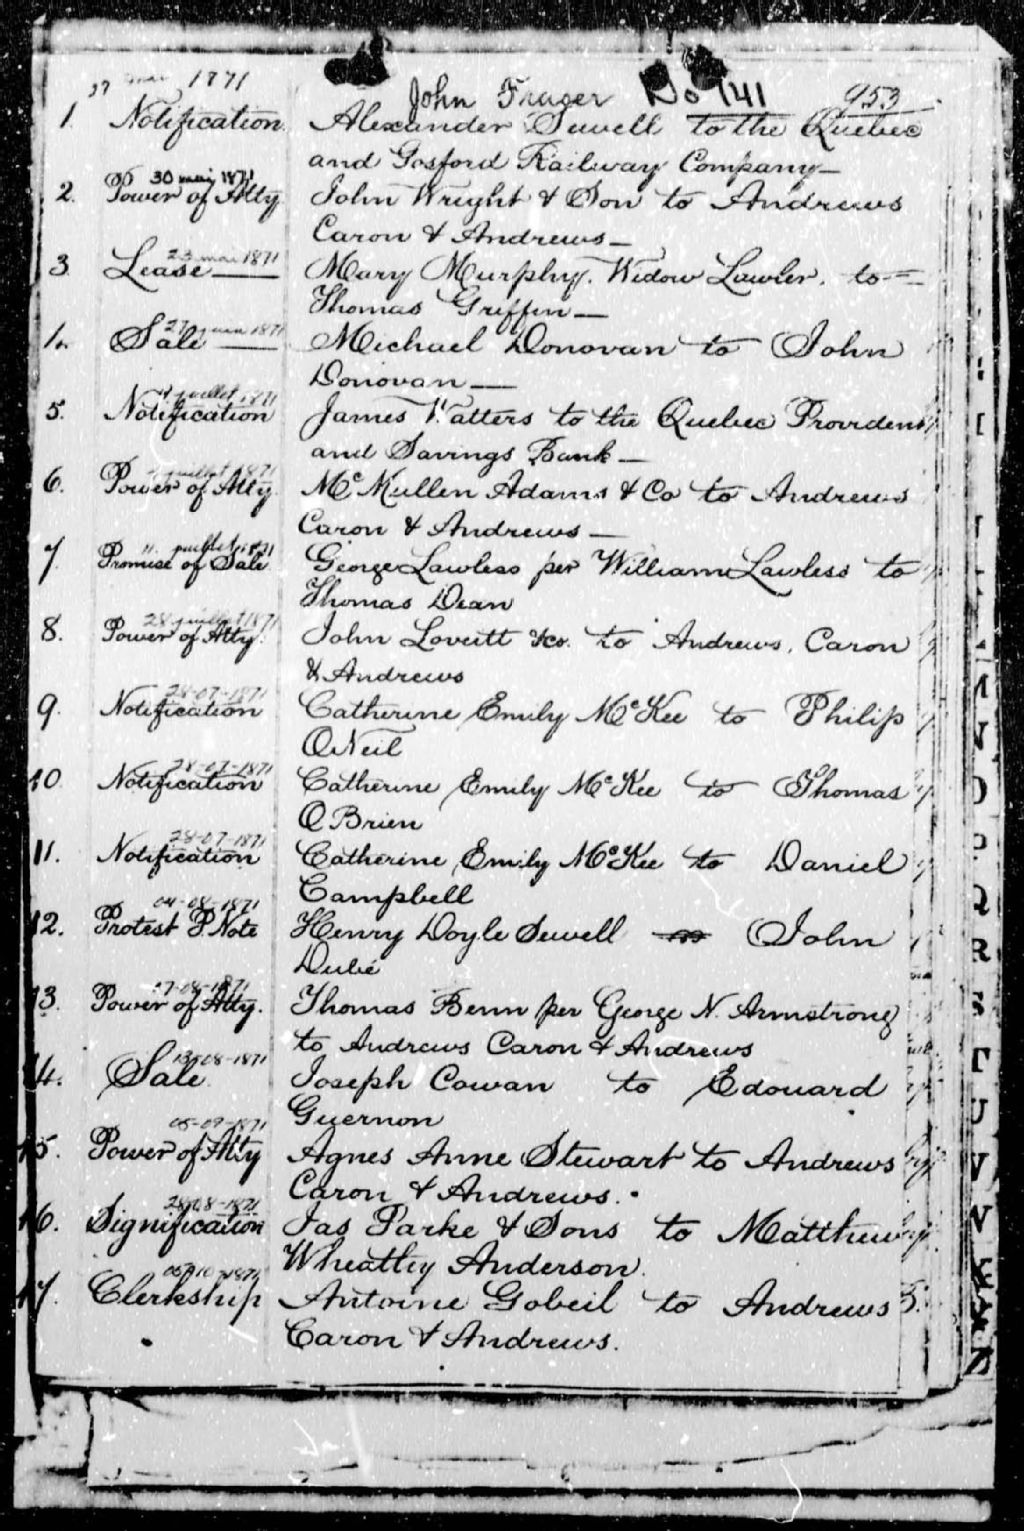 mai 1871
John Frazer No 141 953
1. Notification Alexander Sewell to the Quebec
and Gosford Railway Company
30 mai 1871
2. Power of Atty John Wright & Son to Andrews
Caron & Andrews
23 mai 1871
3. Lease Mary Murphy. Widow Lawler. to
Thomas Griffin
27 juin 1871
4. Sale Michael Donovan to John
Donovan
juillet 1871
5. Notification James Watters to the Quebec Provident
and Savings Bank
juillet 1871
6. Power of Atty McMullen Adams & Co to Andrews
Caron & Andrews
11. juillet 1871
7. Promise of Sale George Lawless per William Lawless to
Thomas Dean
28 juillet 1871
8. Power of Atty. John Lovett &co. to Andrews, Caron
& Andrews
28-07-1871
9. Notification Catherine Emily McKee to Philip
O'Neil
28-07-1871
10 Notification Catherine Emily McKee to Thomas
O'Brien
28-07-1871
11. Notification Catherine Emily McKee to Daniel
Campbell
04-08-1871
12. Protest P. Note Henry Doyle Sewell John
Dubé
-08-1871
13. Power of Atty. Thomas Benn per George N. Armstrong
to Andrews Caron & Andrews
-08-1871
14. Sale Joseph Cowan to Edouard
Guernon
05-09-1871
15. Power of Atty Agnes Anne Stewart to Andrews
Caron & Andrews.
28-08-1871
16. Signification Jas Parke & Sons to Matthew
Wheatley Anderson.
10-1871
17. Clerkship Antoine Gobeil to Andrews
Caron & Andrews.
M
N
O
P
Q
R
S
T
U
V
W
Z